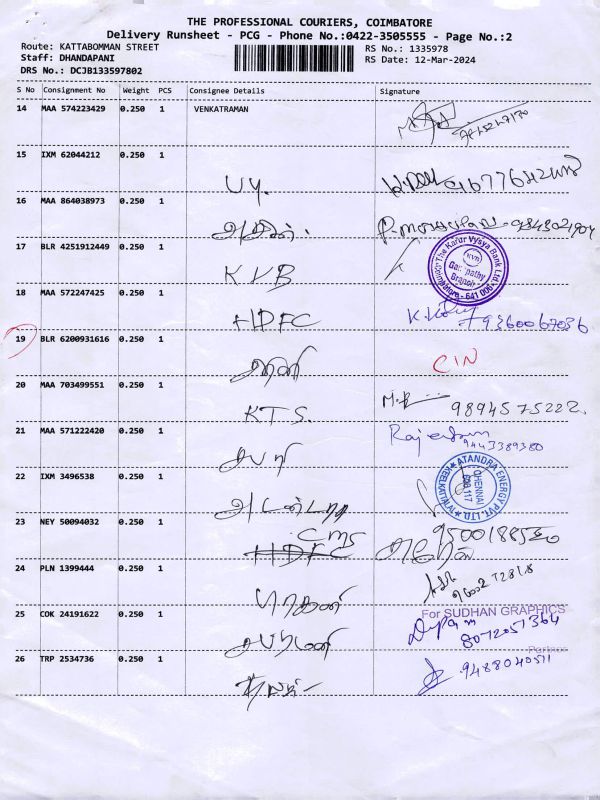 THE PROFESSIONAL COURIERS, COIMBATORE
Delivery Runsheet - PCG - Phone No.:0422-3505555 - Page No.:2
Route: KATTABOMMAN STREET
RS No.: 1335978
Staff: DHANDAPANI
RS Date: 12-Mar-2024
DRS No.: DCJB133597802
S No Consignment No Weight PCS Consignee Details Signature
14 MAA 574223429 0.250 1 VENKATRAMAN
15 IXM 62044212 0.250 1
UY.
16 MAA 864038973 0.250 1
9843021904
17 BLR 4251912449 0.250 1
KVB
The Karur Vysya Bank Ltd. KVB Ganapathy Branch Coimbatore - 641 006
18 MAA 572247425 0.250 1
HDFC 9360067036
19 BLR 6200931616 0.250 1
CIN
20 MAA 703499551 0.250 1
KTS. 9894575222.
21 MAA 571222420 0.250 1
9443389380
22 IXM 3496538 0.250 1
ATANDRA ENERGY PVT. LTD.
CHENNAI 600 117
23 NEY 50094032 0.250 1
CMS
HDFC
24 PLN 1399444 0.250 1
For SUDHAN GRAPHICS
25 COK 24191622 0.250 1
8072057364
Partner
26 TRP 2534736 0.250 1
9488040511